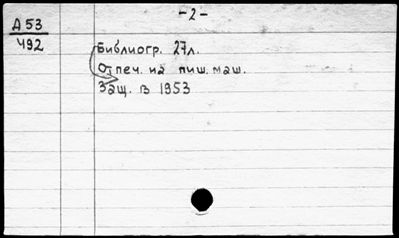 -2-
Д 53
492
Библиогр. 27 л.
Отпеч. на пиш. маш.
Защ. в 1953